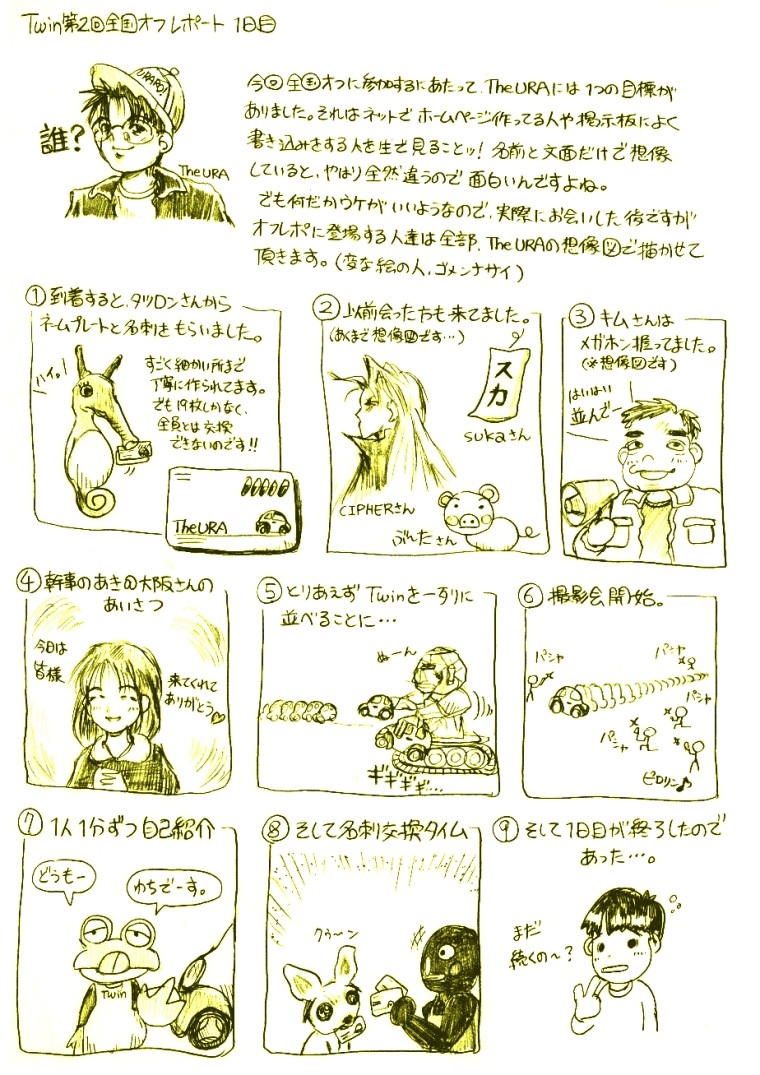 Twin第2回全国オフレポート 1日目
URAPO!
誰?
The URA
今回全国オフに参加するにあたって、The URAには1つの目標が
ありました。それはネットでホームページ作ってる人や掲示板によく
書き込みをする人を生で見ることッ! 名前と文面だけで想像
していると、やはり全然違うので面白いんですよね。
でも何だかウケがいいようなので、実際にお会いした後ですが
オフレポに登場する人達は全部、The URAの想像図で描かせて
頂きます。(変な絵の人、ゴメンナサイ)
① 到着すると、タツロンさんから
ネームプレートと名刺をもらいました。
ハイ。
すごく細かい所まで
丁寧に作られてます。
でも19枚しかなく、
全員とは交換
できないのです!!
The URA
② 以前会った方も来てました。
(あくまで想像図です…)
スカ
sukaさん
CIPHERさん
ぶんたさん
③ キムさんは
メガホン握ってました。
(※想像図です)
はいはい
並んでー
④ 幹事のあき@大阪さんの
あいさつ
今日は
皆様
来てくれて
ありがとう♡
⑤ とりあえずTwinを一列に
並べることに…
ぬーん
ギギギギ…
⑥ 撮影会開始。
パシャ
パシャ
パシャ
パシャ
ピロリン♪
⑦ 1人1分ずつ自己紹介
どうもー
ゆちでーす。
Twin
⑧ そして名刺交換タイム
クゥ〜ン
⑨ そして1日目が終了したので
あった…。
まだ
続くの〜?